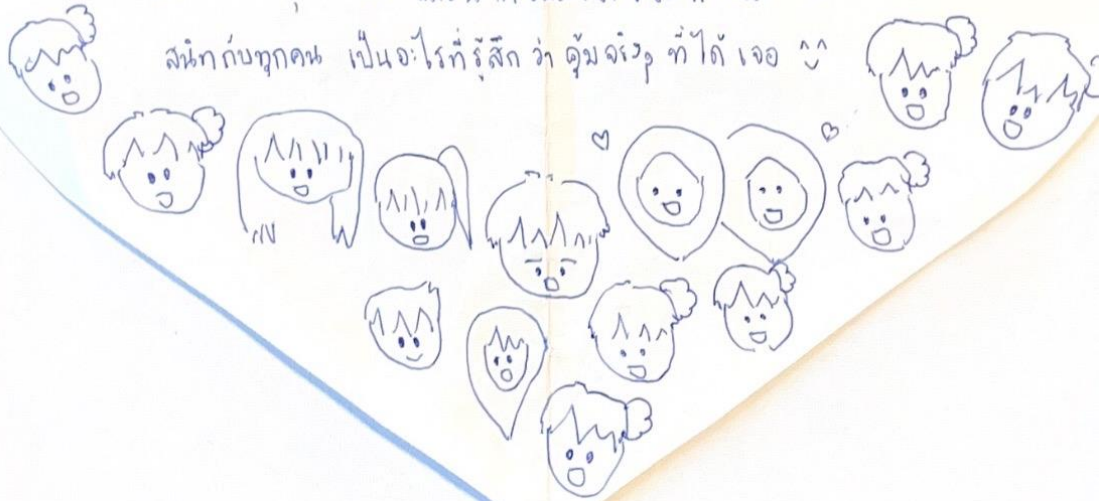 สนิทกับทุกคน เป็นอะไรที่รู้สึก ว่า คุ้มจริงๆ ที่ได้ เจอ ^^